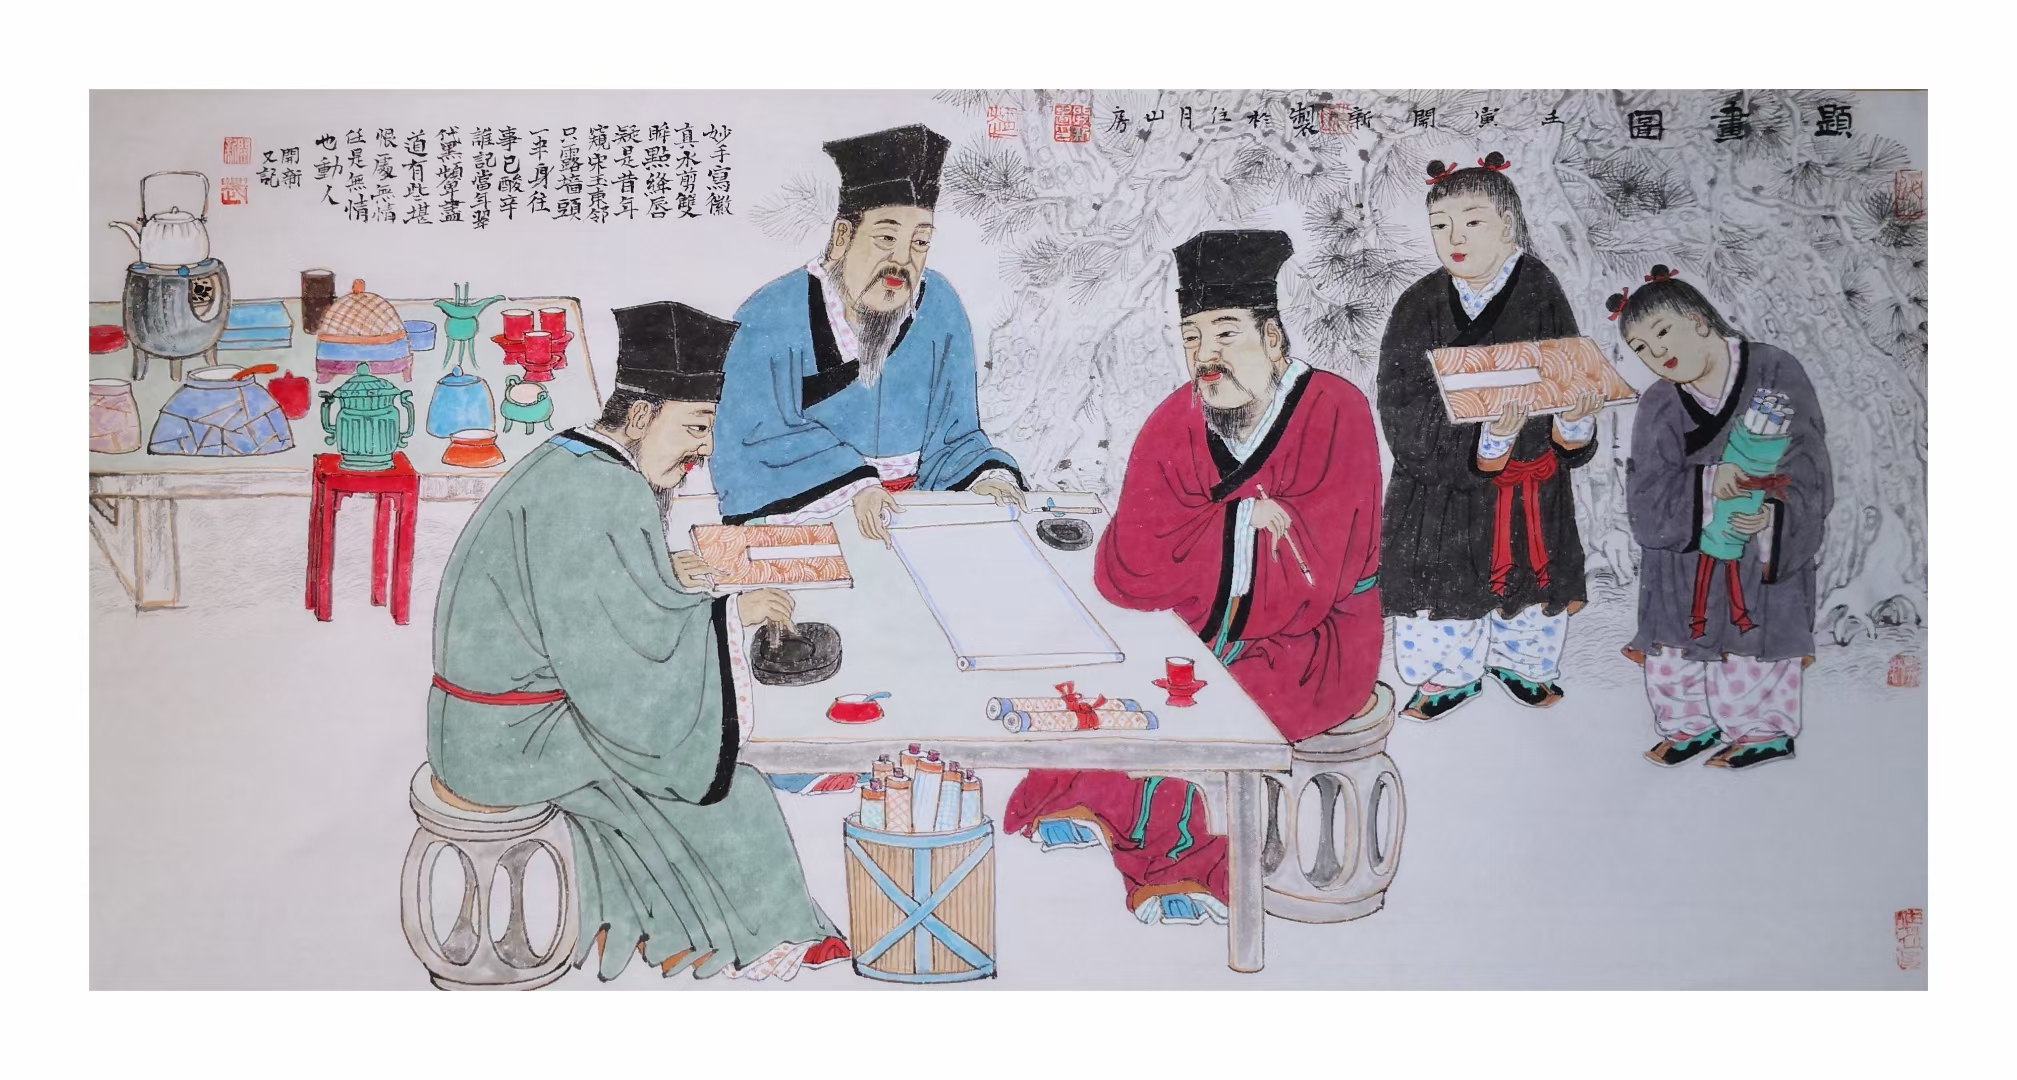 題畫圖
壬寅開新製於住月山房
妙手寫徽
真水剪雙
眸點絳唇
疑是昔年
窺宋玉東鄰
只露墻頭
一半身往
事已酸辛
誰記當年翠
黛顰盡
道有些堪
恨處無情
任是無情
也動人
開新
又記